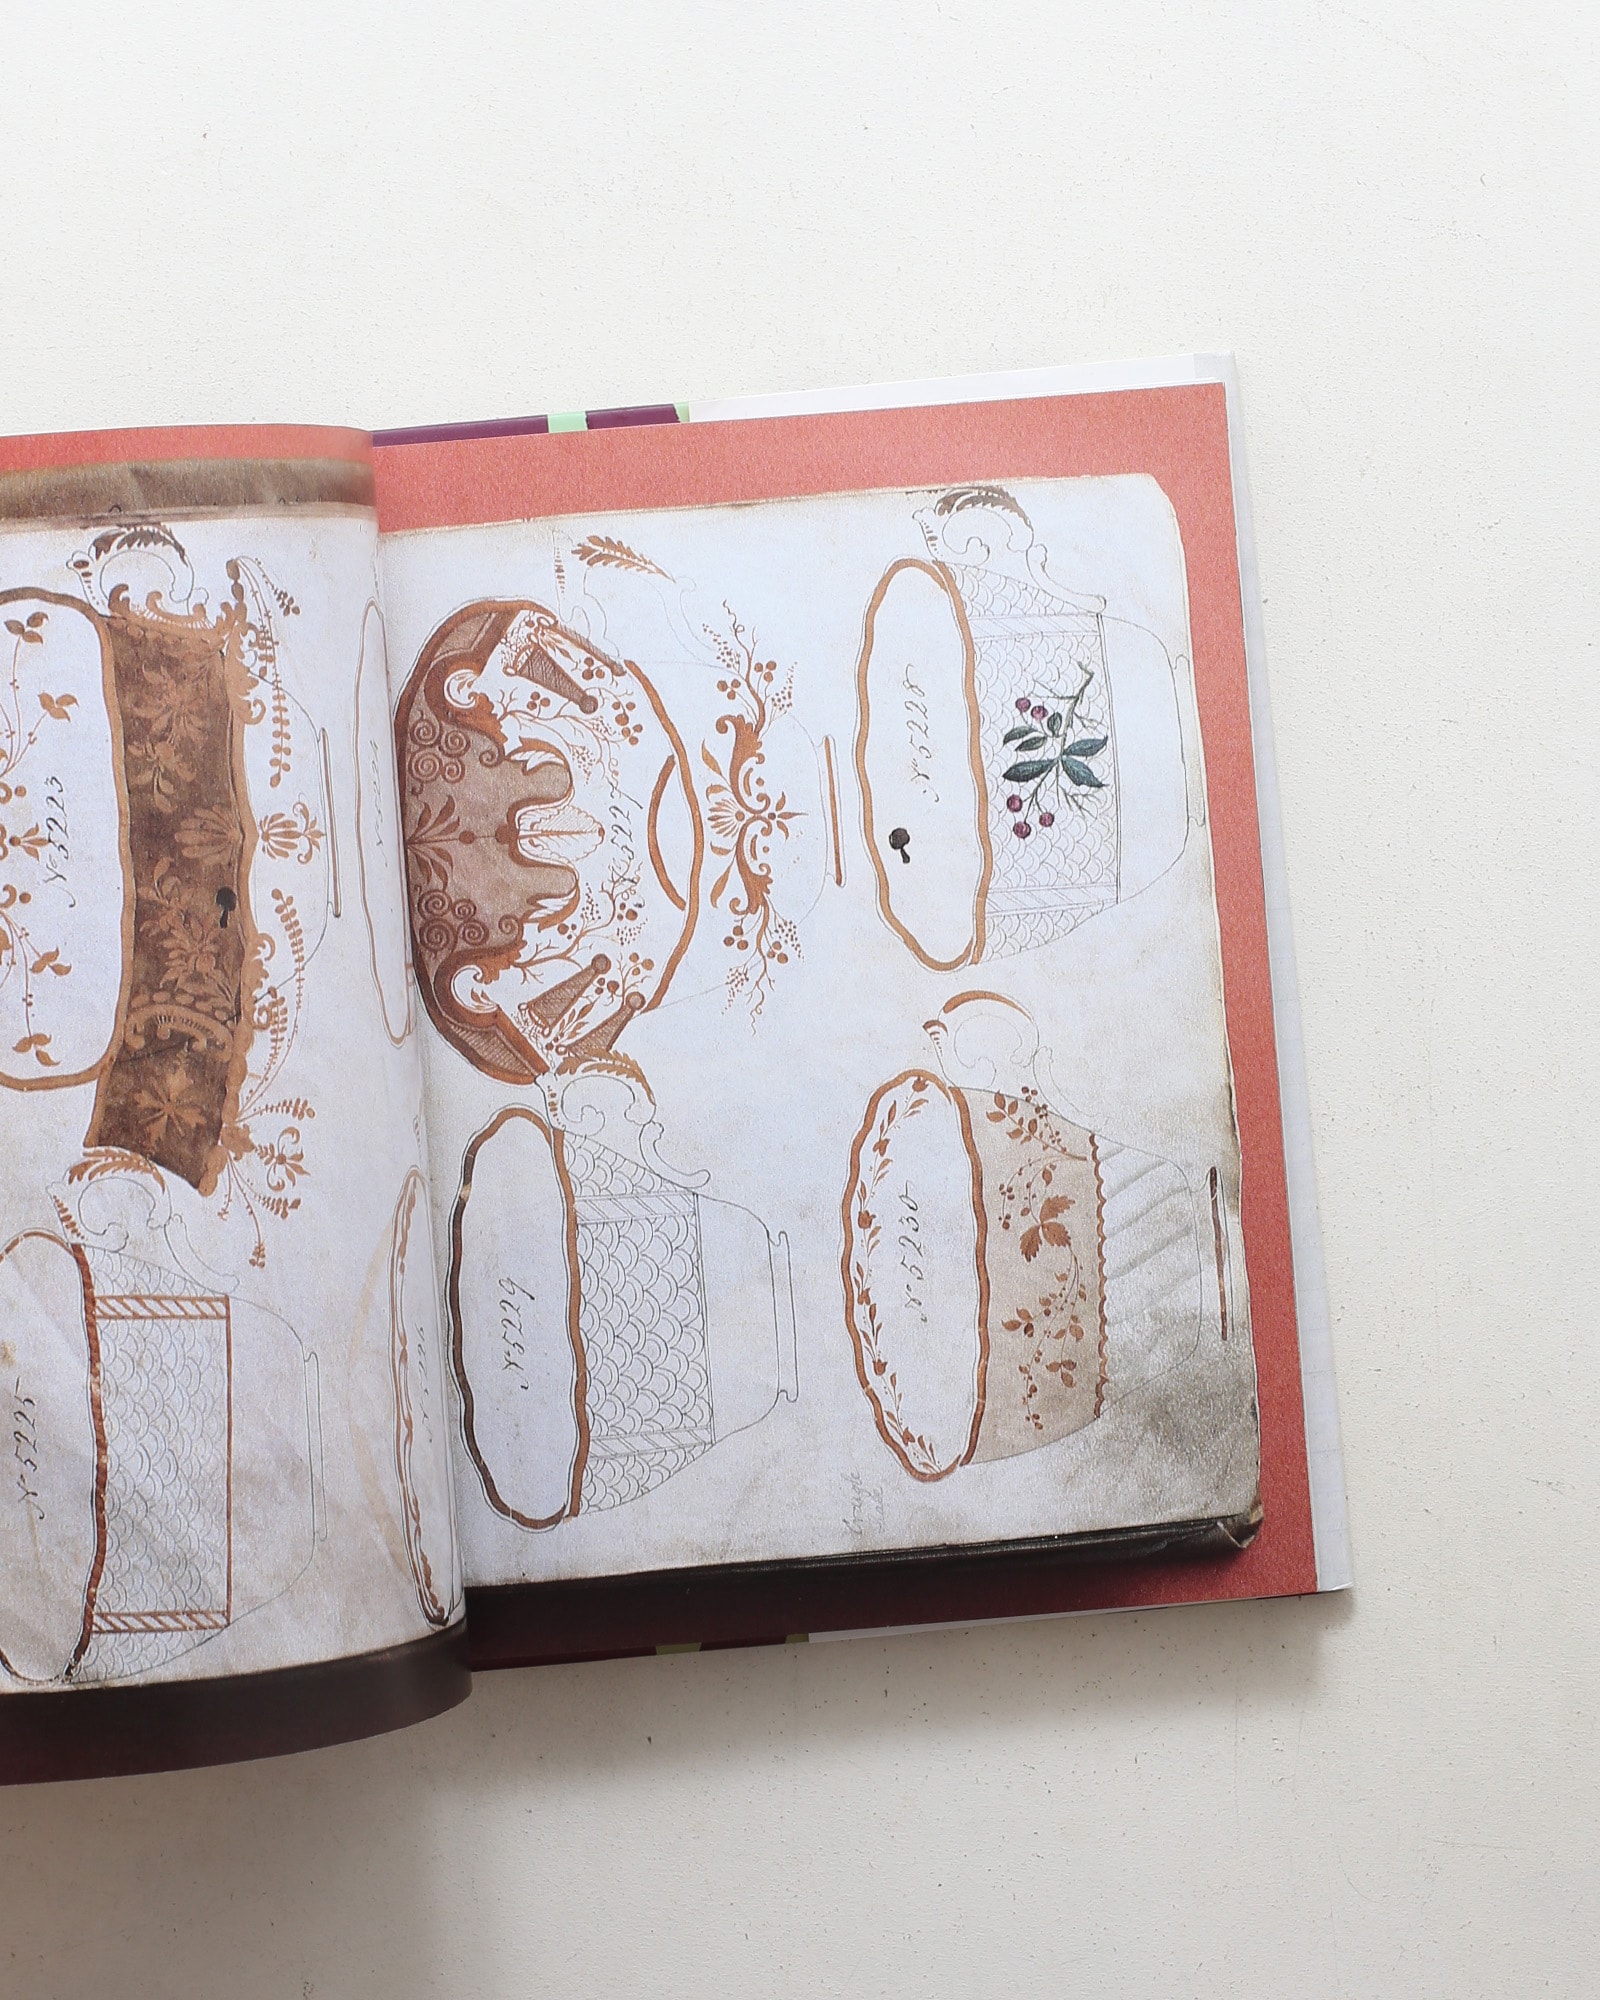 No 5223
No 5225
No 5227
No 5228
No 5229
No 5230